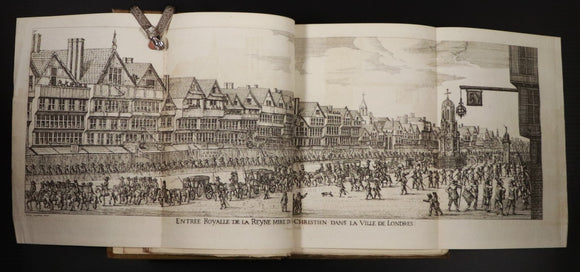 ENTREE ROYALLE DE LA REYNE MERE CHRESTIEN DANS LA VILLE DE LONDRES